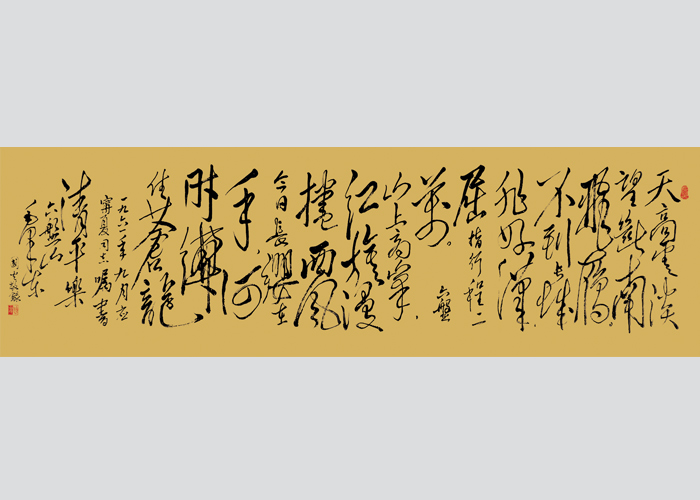 天高雲淡
望斷南
飛雁。
不到長城
非好漢.
屈指行程二
萬。六盤
山上高峯.
红旗漫
捲西風
今日長纓在
手何
時縛
住蒼龍
一九六一年九月应
寧夏同志嘱書
清平樂
六盤山
毛澤東